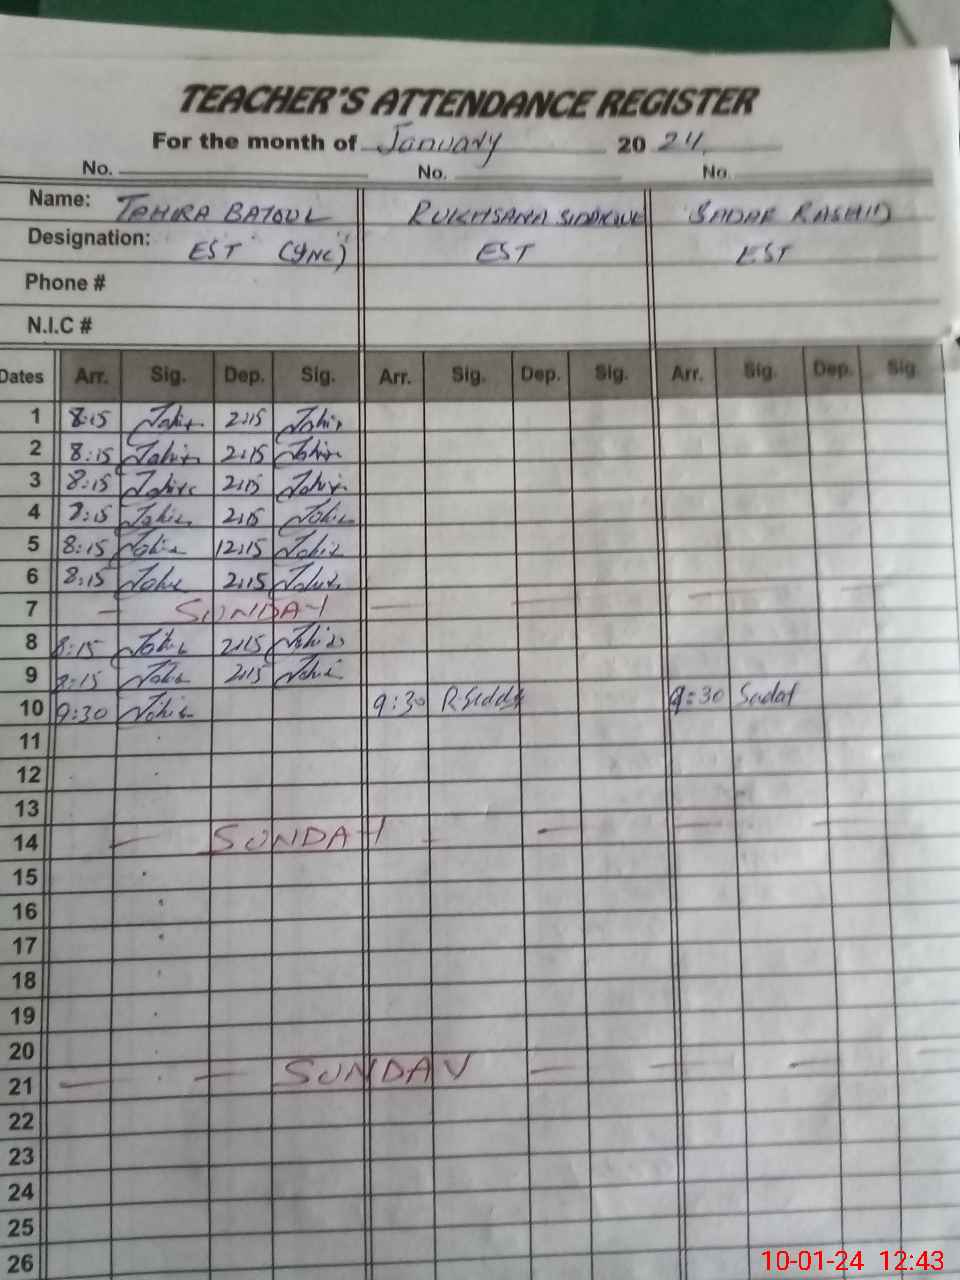 TEACHER'S ATTENDANCE REGISTER
For the month of January 2024
No. No. No.
Name: TAHIRA BATOUL RUKHSANA SADAF RASHID
Designation: EST EST EST
Phone #
N.I.C #
Dates Arr. Sig. Dep. Sig. Arr. Sig. Dep. Sig. Arr. Sig. Dep. Sig.
1 8:15 Tahir 2:15 Tahir
2 8:15 Tahir 2:15 Tahir
3 8:15 Tahir 2:15 Tahir
4 8:15 Tahir 2:15 Tahir
5 8:15 Tahir 12:15 Tahir
6 8:15 Tahir 2:15 Tahir
7 — SUNDAY — — — —
8 8:15 Tahir 2:15 Tahir
9 8:15 Tahir 2:15 Tahir
10 9:30 Tahir 9:30 9:30 Sadaf
11
12
13
14 — SUNDAY — — — —
15
16
17
18
19
20
21 — — SUNDAY — — —
22
23
24
25
26
10-01-24 12:43